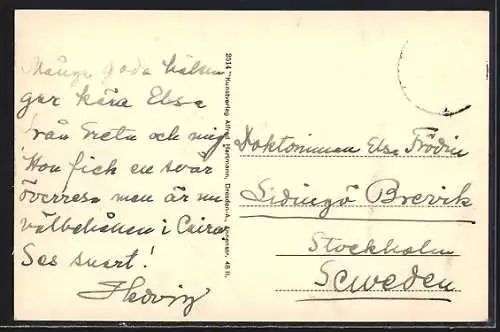 Många goda hälsn
gar kära Elsa
från Greta och mig
Hon fick en svår
överresa men är nu
välbehållen i Cairo,
Ses snart!
Hedvig
2514 "Kunstverlag Alfred Hartmann, Dresden-A., 48 II.
Doktorinnan Elsa Frödin
Lidingö Brevik
Stockholm
Scweden